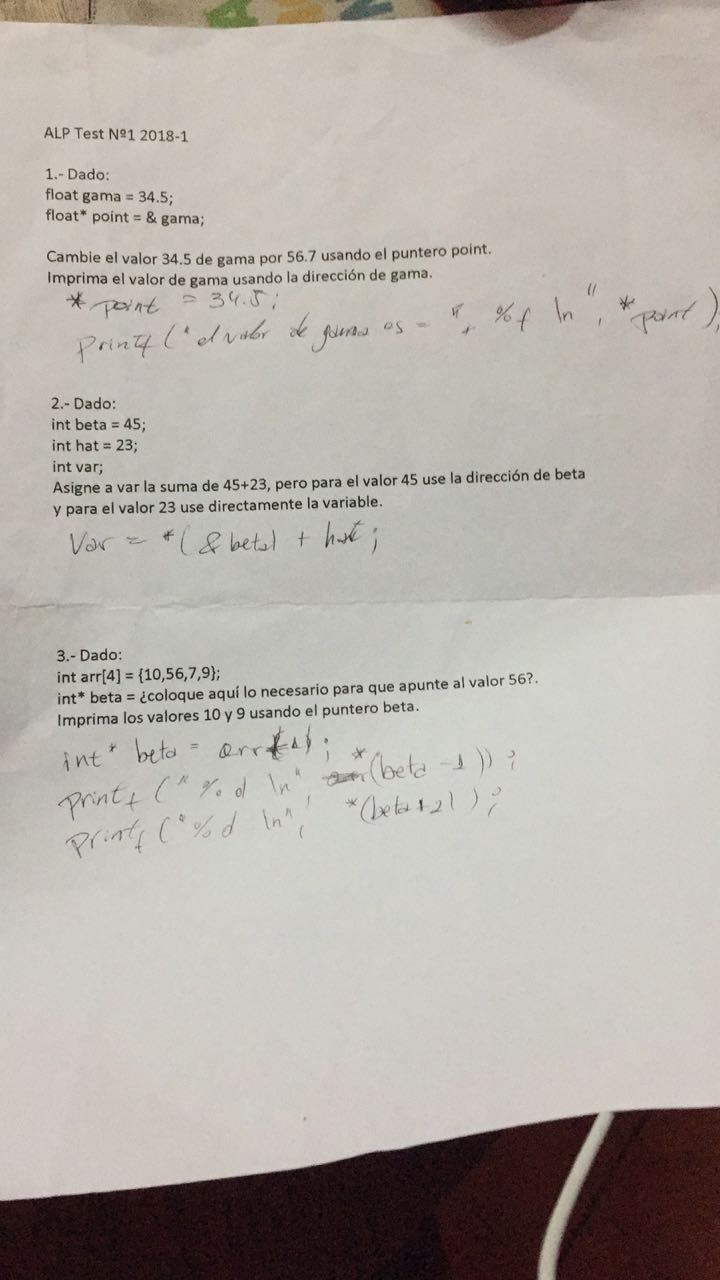 ALP Test Nº1 2018-1
1.- Dado:
float gama = 34.5;
float* point = & gama;
Cambie el valor 34.5 de gama por 56.7 usando el puntero point.
Imprima el valor de gama usando la dirección de gama.
* point = 34.5;
printf (" el valor de gama es = ", %f \n", *point);
2.- Dado:
int beta = 45;
int hat = 23;
int var;
Asigne a var la suma de 45+23, pero para el valor 45 use la dirección de beta
y para el valor 23 use directamente la variable.
Var = *(&beta) + hat;
3.- Dado:
int arr[4] = {10,56,7,9};
int* beta = ¿coloque aquí lo necesario para que apunte al valor 56?.
Imprima los valores 10 y 9 usando el puntero beta.
int* beta = ;
printf ("%d \n", *(beta -1));
printf ("%d \n", *(beta+2));